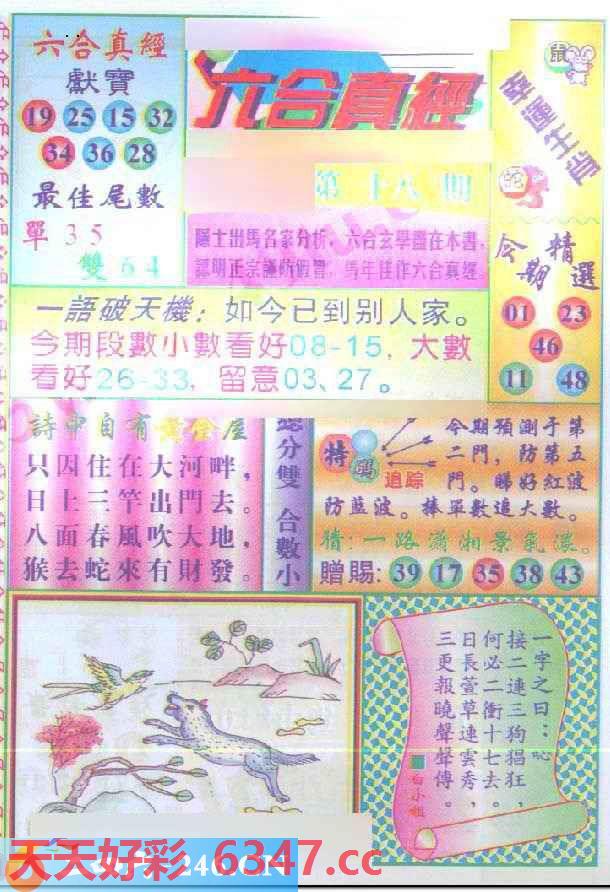 六合真經
獻寶
19 25 15 32
34 36 28
最佳尾數
單 3 5
雙 6 4
六合真經
第十八期
隱士出馬名家分析,六合玄學盡在本書,
認明正宗謹防假冒,馬年佳作六合真經
鼠
幸運生肖
蛇
今期精選
01 23
46
11 48
一語破天機:如今已到别人家。
今期段數小數看好08-15,大數
看好26-33,留意03、27。
詩中自有黄金屋
只因住在大河畔,
日上三竿出門去。
八面春風吹大地,
猴去蛇來有財發。
總分雙 合數小
特碼
追踪
今期預測于第
二門,防第五
門。睇好紅波
防藍波。捧單數追大數。
猜:一路瀟湘景氣濃。
贈賜:39 17 35 38 43
一字之曰:吣
接二連三狗猖狂,
何必二衝十七去。
日長萱草連雲秀,
三更報曉聲聲傳。
白小姐
天天好彩 6347.cc